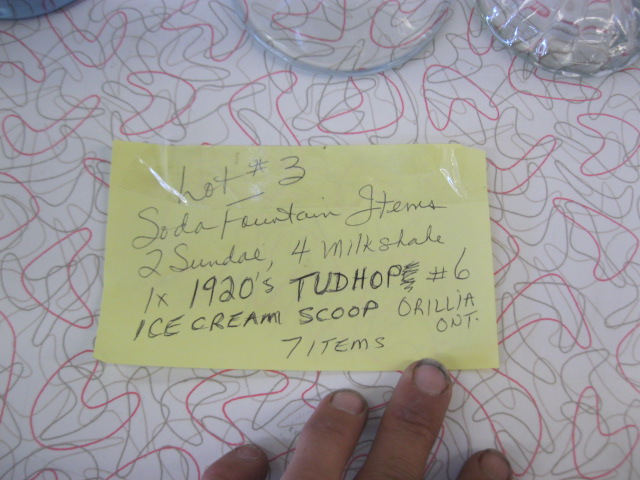 Lot # 3
Soda Fountain Items
2 Sundae, 4 Milkshake
1x 1920's TUDHOPE #6
ICE CREAM SCOOP ORILLIA
ONT.
7 ITEMS